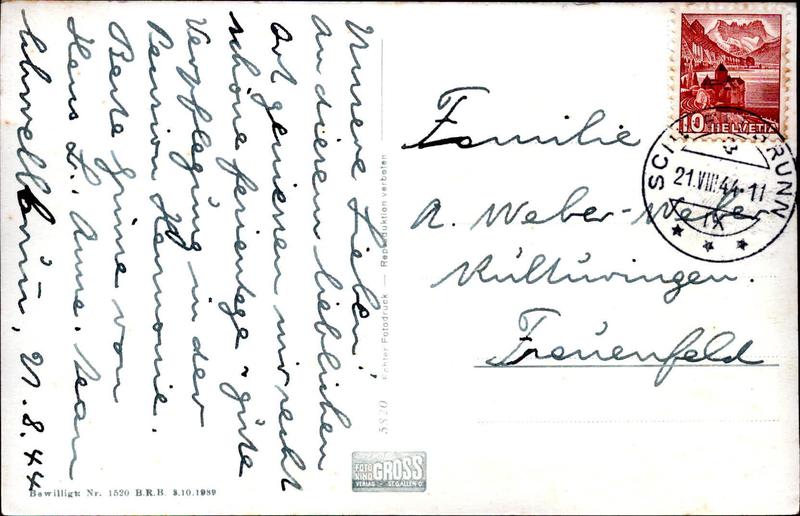 Unsere Lieben!
An diesem lieblichen
Ort geniessen wir recht
schöne Ferientage & gute
Verpflegung in der
Pension Harmonie.
Beste Grüsse von
Hans L. Anne.
Schwellbrunn, 21.8.44
Familie
A. Weber-Weber
Kurzdorf
Frauenfeld
HELVETIA
10
21.VIII.44-11
IX
5820 Echter Fotodruck — Reproduktion verboten
FOTO KINO GROSS
VERLAG ST. GALLEN O
Bewilligt Nr. 1520 B.R.B. 3.10.1939